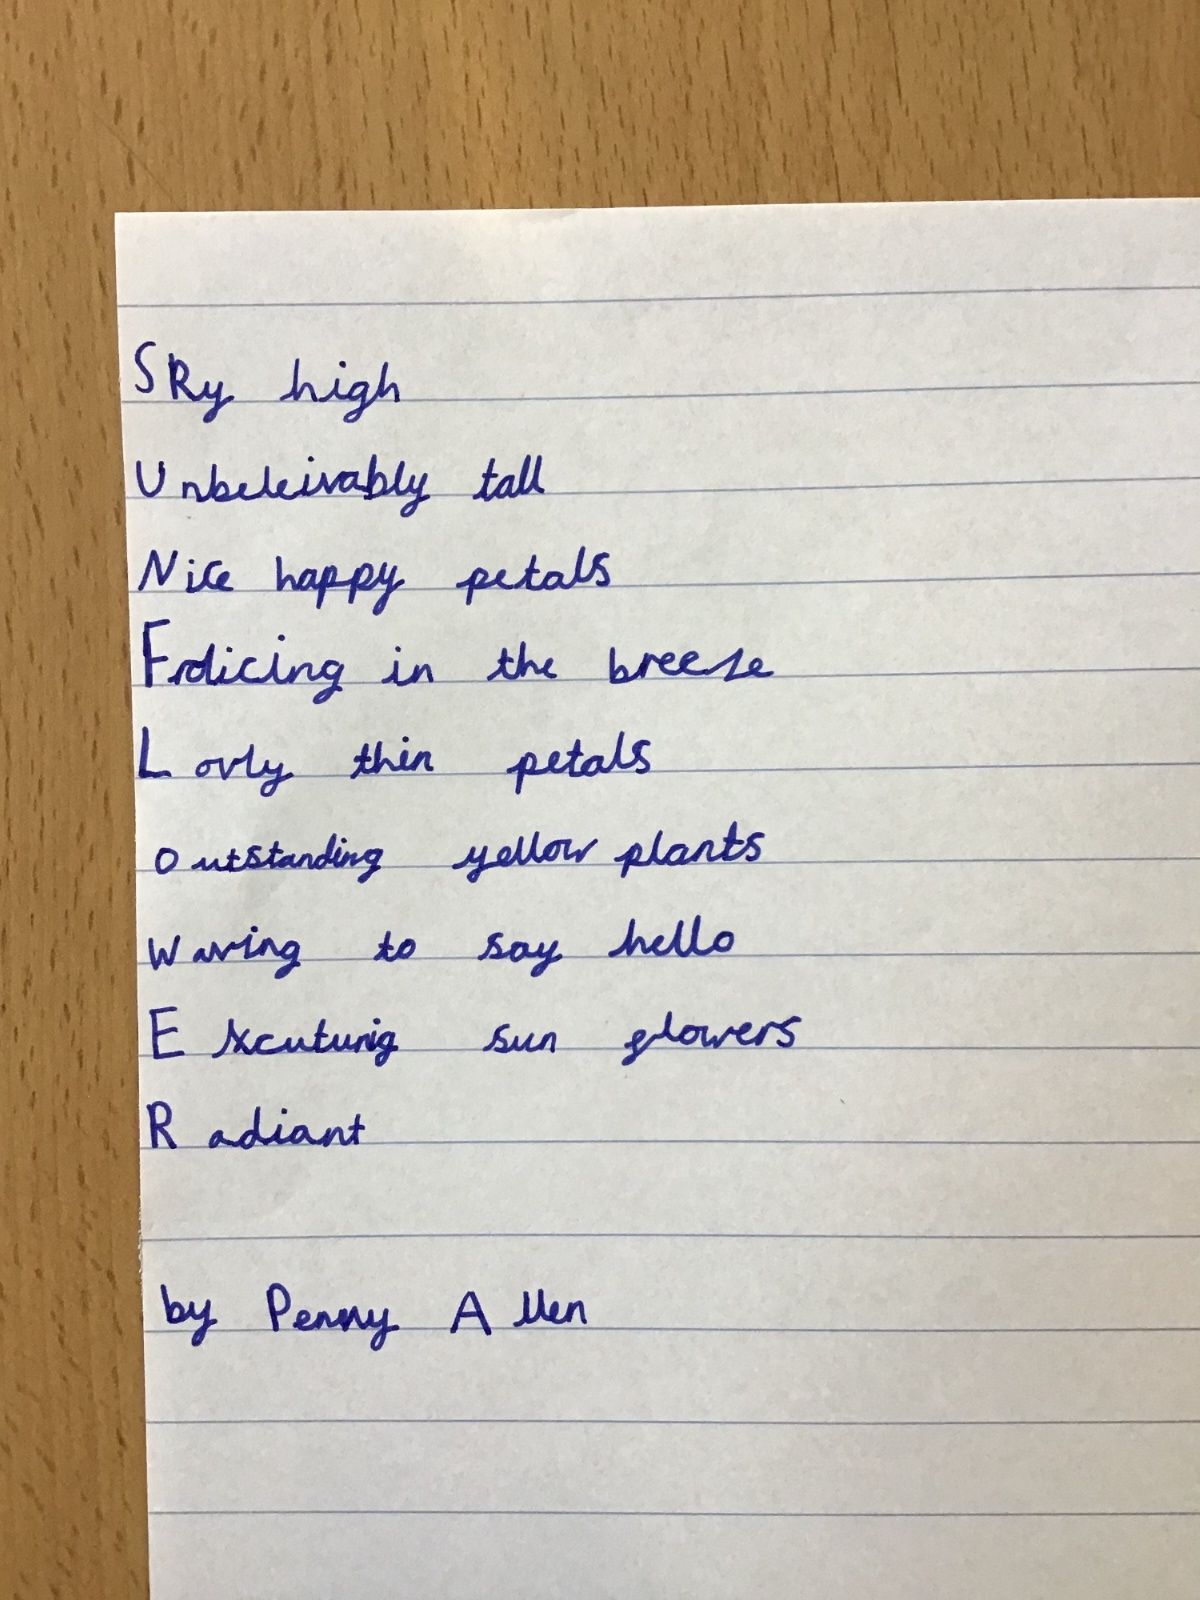 Sky high
Unbeleivably tall
Nice happy petals
Frolicing in the breeze
Lovly thin petals
Outstanding yellow plants
Waving to say hello
sun flowers
Radiant
by Penny Allen